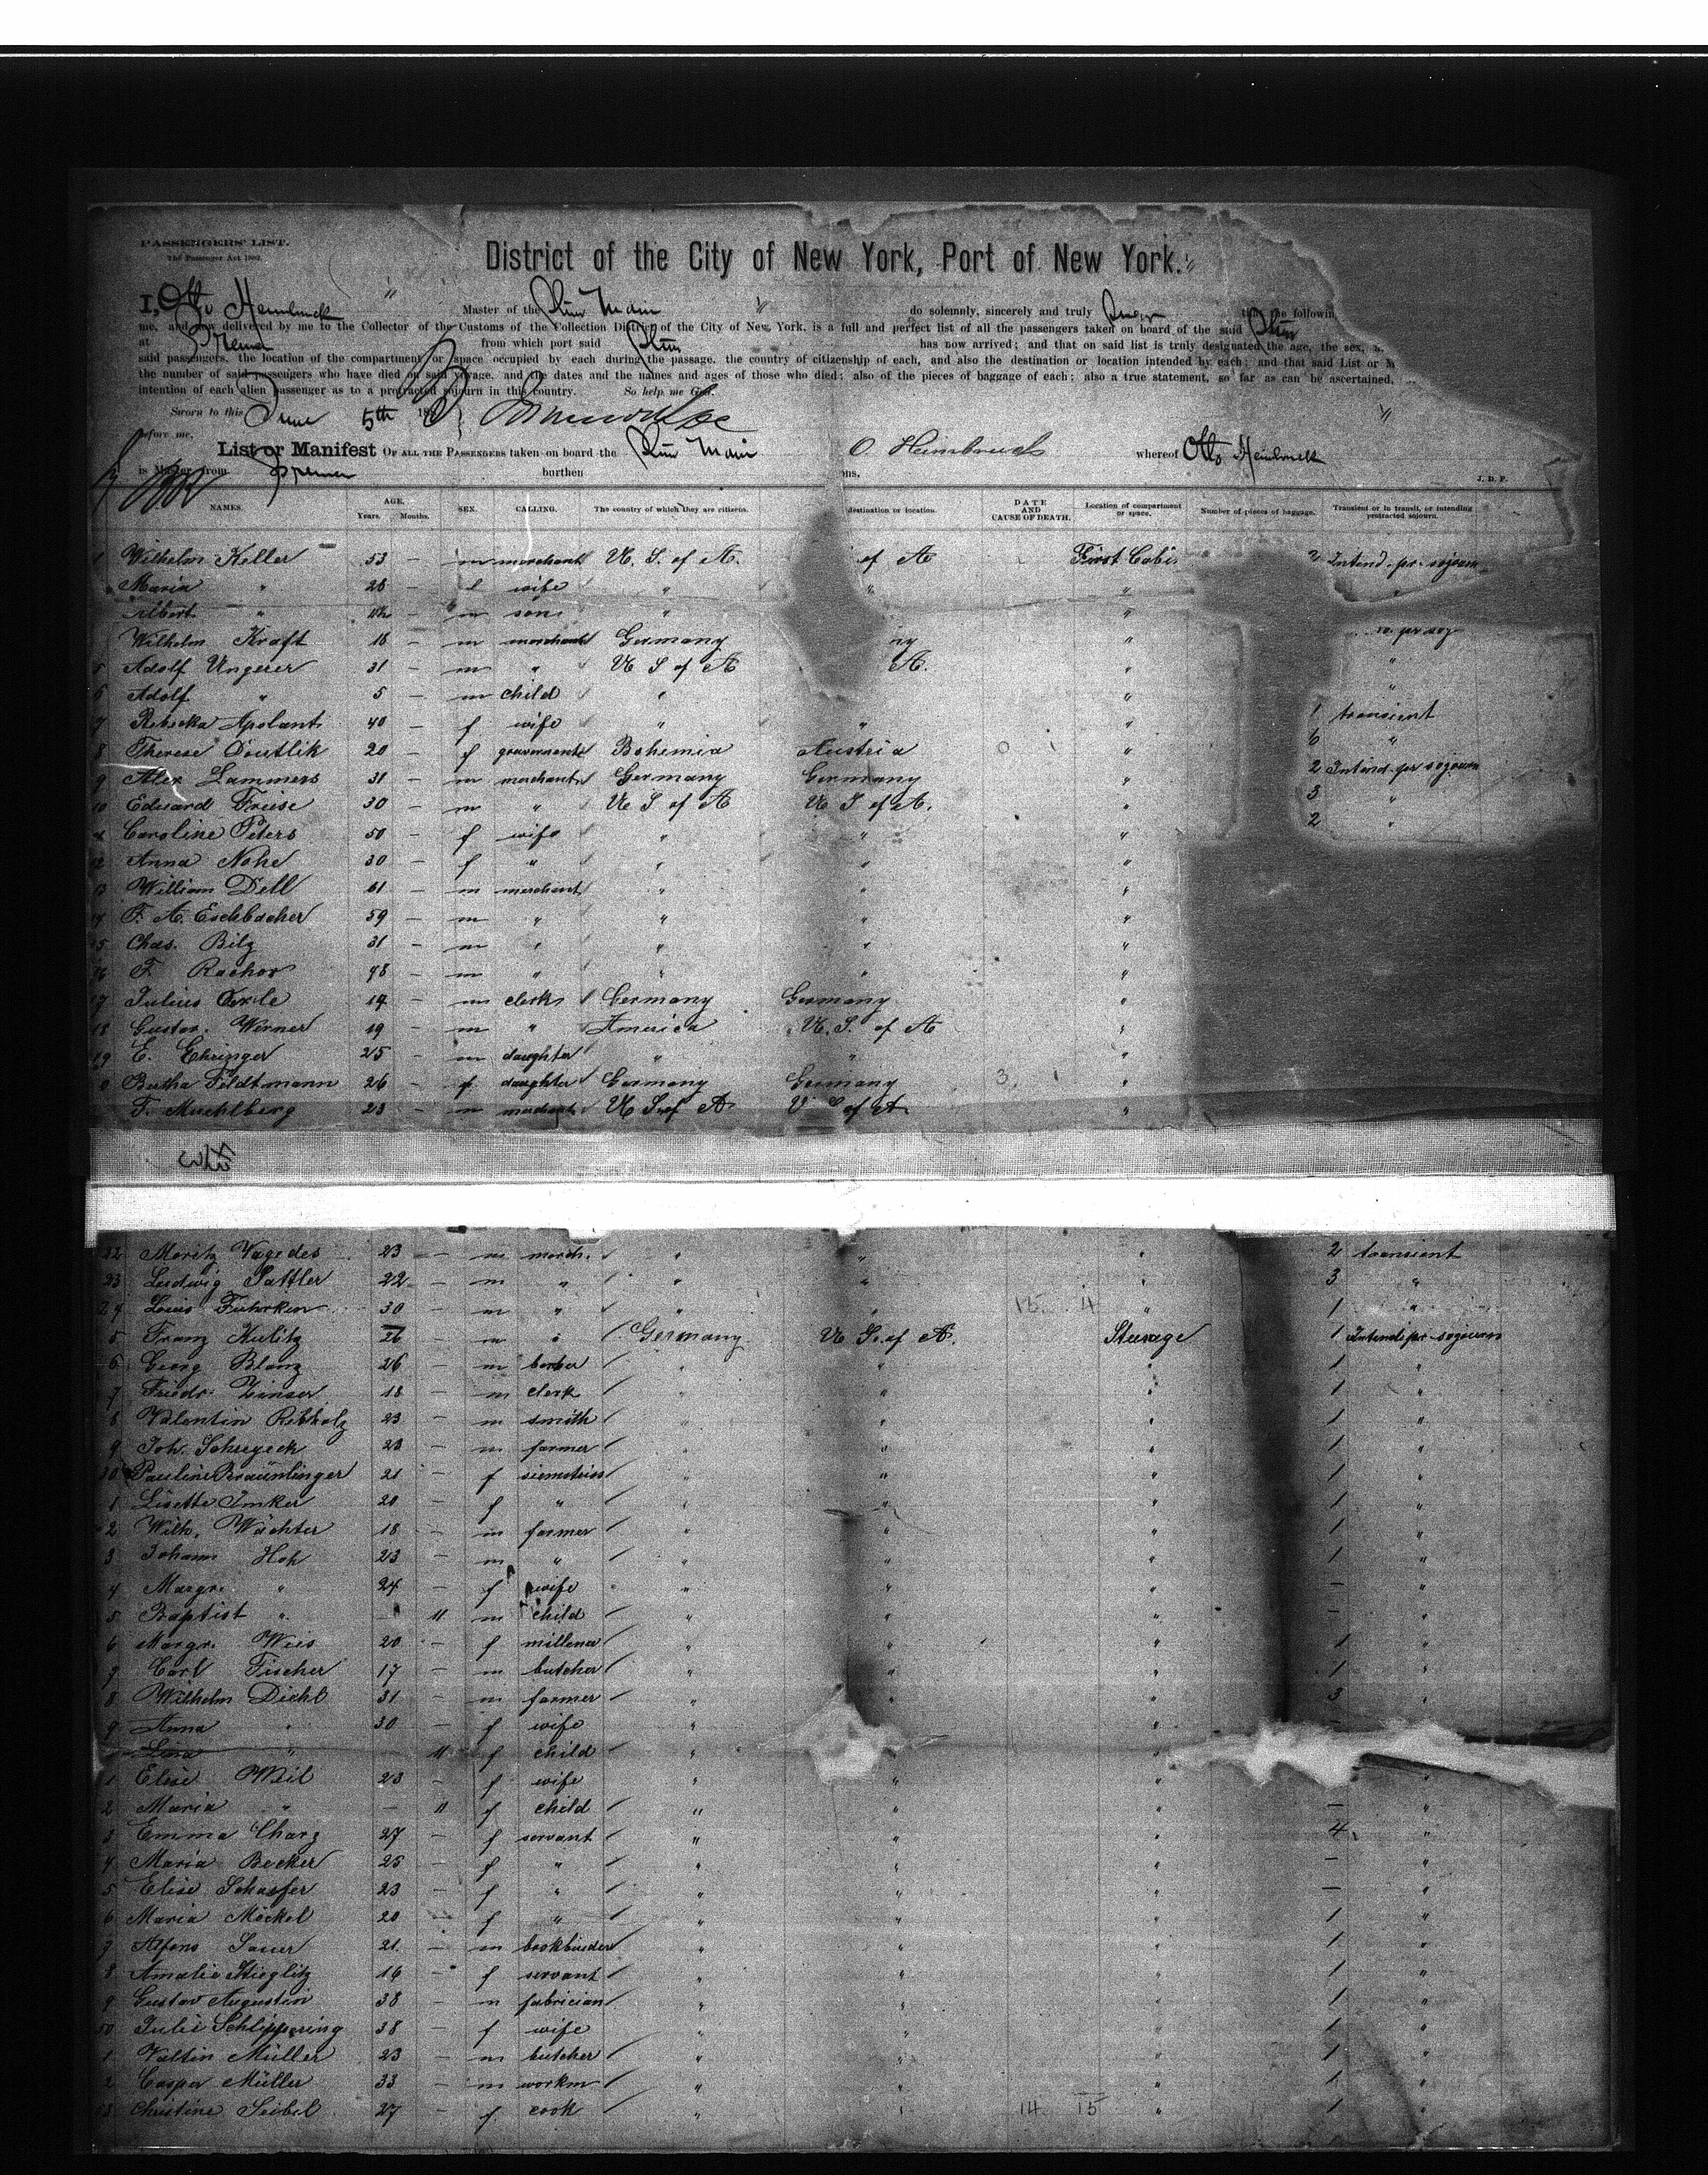 PASSENGERS' LIST.
The Passenger Act 1882.
District of the City of New York, Port of New York.
I, Otto Heimbruch Master of the Main do solemnly, sincerely and truly the followin
me, and now delivered by me to the Collector of the Customs of the Collection District of the City of New York, is a full and perfect list of all the passengers taken on board of the said
at Bremen from which port said has now arrived; and that on said list is truly designated the age, the sex,
said passengers, the location of the compartment or space occupied by each during the passage, the country of citizenship of each, and also the destination or location intended by each; and that said List or M
the number of said passengers who have died on said voyage, and the dates and the names and ages of those who died; also of the pieces of baggage of each; also a true statement, so far as can be ascertained,
intention of each alien passenger as to a protracted sojourn in this country. So help me God.
Sworn to this June 5th 18
before me,
List or Manifest OF ALL THE PASSENGERS taken on board the Main O. Heimbruch whereof Otto Heimbruch
is Master from Bremen burthen ons.
J. D. P.
NAMES. AGE. Years. Months. SEX. CALLING. The country of which they are citizens. destination or location. DATE AND CAUSE OF DEATH. Location of compartment or space. Number of pieces of baggage. Transient or in transit, or intending protracted sojourn.
1 Wilhelm Keller 53 — m merchant U. S. of A. of A First Cabi 2 Intend. pr. sojourn
Maria " 28 — f wife " " "
Albert " — m son " "
Wilhelm Kraft 18 — m merchant Germany ny " pr soj
5 Adolf Ungerer 31 — m " U S of A A. " "
6 Adolf " 5 — m child " " "
7 Rebecka Apolant 40 — f wife " " " 1 transient
8 Therese Doutlik 20 — f Bohemia Austria " 6 "
9 Alex Lammers 31 — m merchant Germany Germany " 2 Intend. pr sojourn
10 Eduard Friese 30 — m " U S of A U S of A. " 3 "
Caroline Peters 50 — f wife " " " 2 "
12 Anna Nohe 30 — f " " " "
13 William Dell 61 — m merchant " " "
14 F. A. Eschbacher 59 — m " " " "
15 Chas. Bilz 31 — m " " " "
16 F. Rachor 48 — m " " " "
17 Julius 14 — m clerk Germany Germany "
18 Gustav. Werner 19 — m " America U. S. of A "
19 E. Ehringer 25 — m daughter " " "
0 Bertha Feldtmann 26 — f daughter Germany Germany 3 1 "
F. Muehlberg 23 — m merchant U S of A U S of A "
22 Moritz Vagedes 23 — m merch. " " " 2 transient
23 Ludwig Sattler 22 — m " " " " 3 "
24 Louis Fuhrken 30 — m " " " " 1 "
5 Franz Kulitz 26 — m " Germany U S. of A. Steerage 1 Intend pr sojourn
6 Georg Blanz 26 — m barber " " " 1 "
7 Friedr. Zinser 18 — m clerk " " " 1 "
8 Valentin Rebholz 23 — m smith " " " 1 "
9 Joh. Schregeck 23 — m farmer " " " 1 "
30 Pauline Bräunlinger 21 — f " " " 1 "
1 Lisette Imker 20 — f " " " " 1 "
2 Wilh. Wächter 18 — m farmer " " " 1 "
3 Johann Hoh 23 — m " " " " 1 "
4 Margr. " 24 — f wife " " " — "
5 Baptist " — 11 m child " " " — "
6 Margr. Weis 20 — f millener " " " 1 "
7 Carl Fischer 17 — m butcher " " " 1 "
8 Wilhelm Diehl 31 — m farmer " " " 3 "
9 Anna " 30 — f wife " " —
Lina " 11 f child " "
1 Elise Weil 23 — f wife " " " "
2 Maria " — 11 f child " " " — "
3 Emma Charz 27 — f servant " " " 4 "
4 Maria Becker 25 — f " " " " — "
5 Elise Schaefer 23 — f " " " " — "
6 Maria Möckel 20 — f " " " " 1 "
7 Alfons Sauer 21 — m bookbinder " " " 1 "
8 Amalie Stieglitz 16 — f servant " " " 1 "
9 Gustav Augustin 38 — m fabrician " " " 1 "
50 Julie Schlippering 38 — f wife " " " 1 "
1 Valtin Müller 23 — m butcher " " " 1 "
2 Caspar Müller 33 — m workm " " " 1 "
53 Christine Seibel 27 — f cook " " 14 15 " 1 "